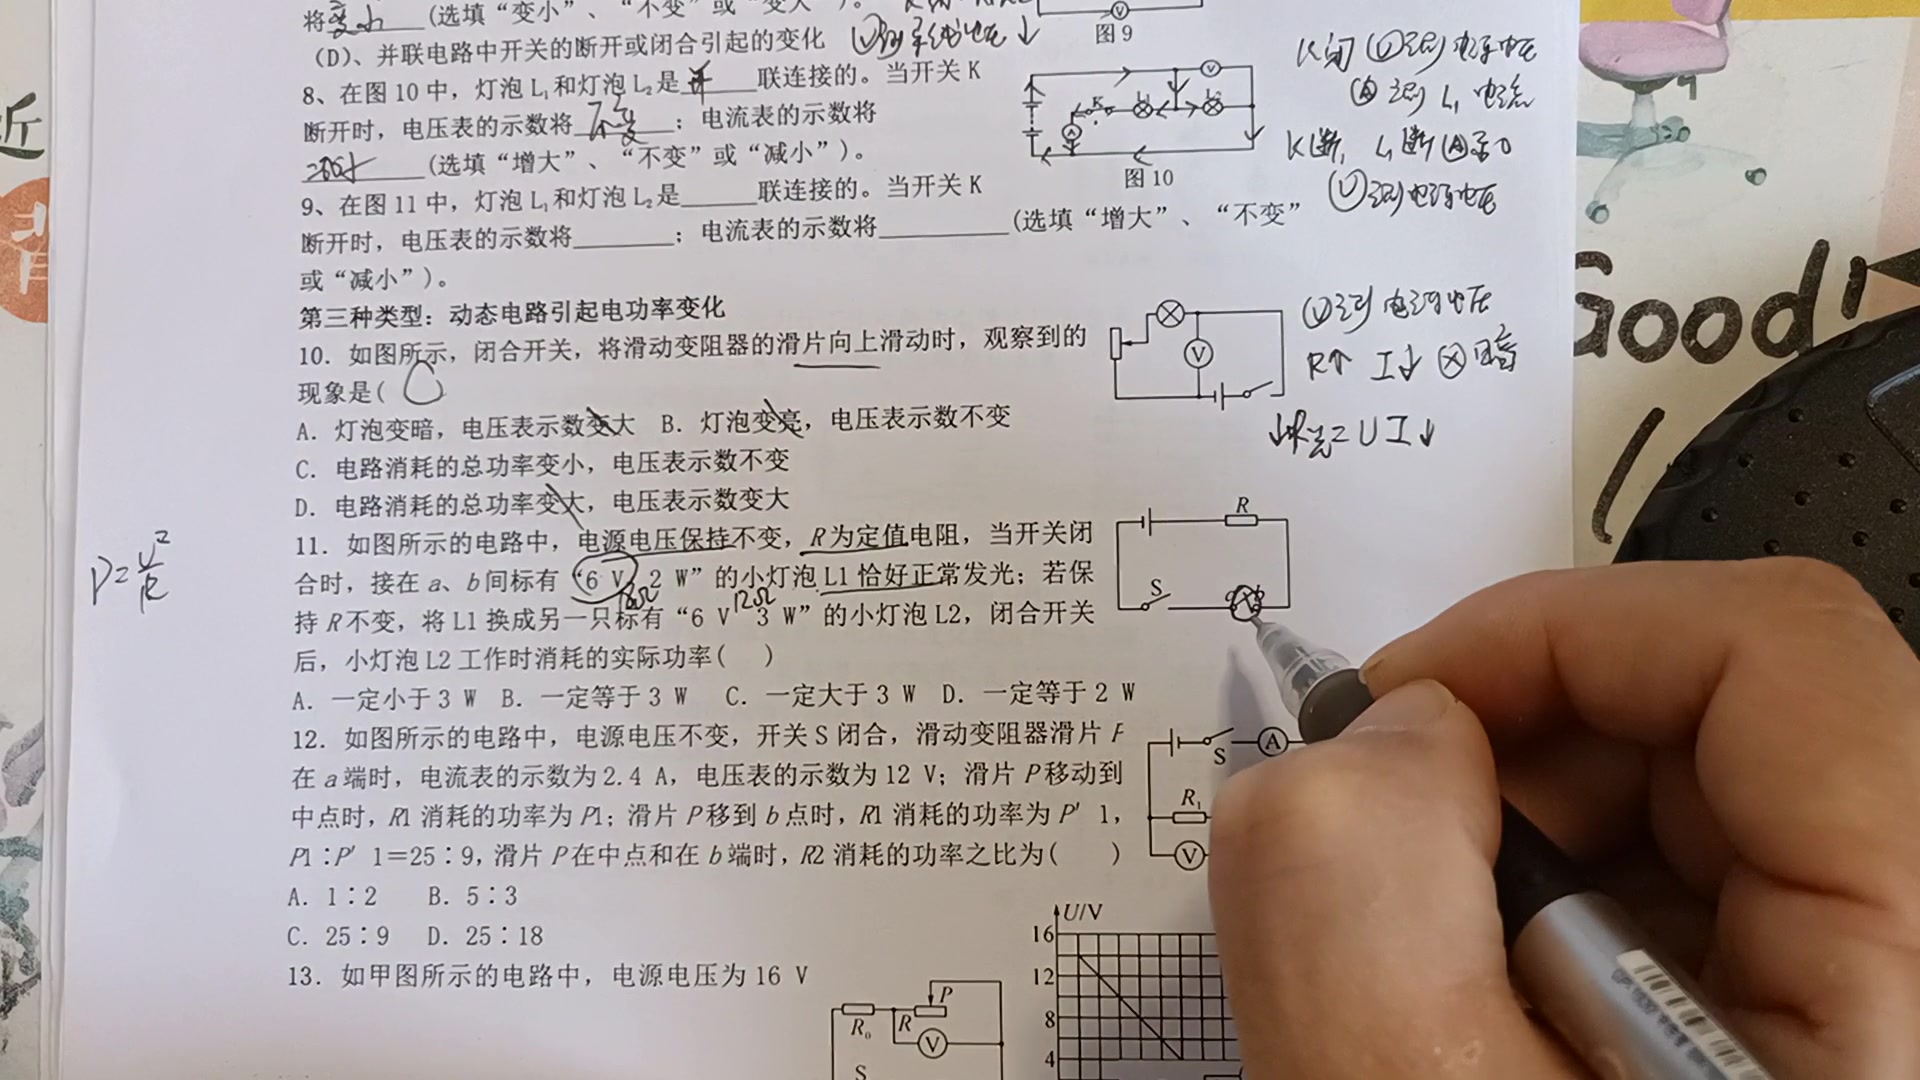 将变小(选填“变小”、“不变”或“变大”)。
(D)、并联电路中开关的断开或闭合引起的变化
图9
8、在图10中，灯泡L₁和灯泡L₂是并联连接的。当开关K
断开时，电压表的示数将不变；电流表的示数将
减小(选填“增大”、“不变”或“减小”)。
图10
K闭 V测电源电压
A测L₁电流
K断，L₁断 A示0
V测电源电压
9、在图11中，灯泡L₁和灯泡L₂是______联连接的。当开关K
断开时，电压表的示数将______；电流表的示数将______(选填“增大”、“不变”
或“减小”)。
第三种类型：动态电路引起电功率变化
10．如图所示，闭合开关，将滑动变阻器的滑片向上滑动时，观察到的
现象是(
V
V测电源电压
R↑ I↓ 暗
A．灯泡变暗，电压表示数变大 B．灯泡变亮，电压表示数不变
C．电路消耗的总功率变小，电压表示数不变
D．电路消耗的总功率变大，电压表示数变大
↓P总=UI↓
11．如图所示的电路中，电源电压保持不变，R为定值电阻，当开关闭
合时，接在a、b间标有“6 V 2 W”的小灯泡L1恰好正常发光；若保
18Ω 12Ω
持R不变，将L1换成另一只标有“6 V 3 W”的小灯泡L2，闭合开关
后，小灯泡L2工作时消耗的实际功率( )
A．一定小于3 W B．一定等于3 W C．一定大于3 W D．一定等于2 W
P=U²/R
R
S
12．如图所示的电路中，电源电压不变，开关S闭合，滑动变阻器滑片P
在a端时，电流表的示数为2.4 A，电压表的示数为12 V；滑片P移动到
中点时，R1消耗的功率为P1；滑片P移到b点时，R1消耗的功率为P′1，
P1∶P′1＝25∶9，滑片P在中点和在b端时，R2消耗的功率之比为( )
A．1∶2 B．5∶3
C．25∶9 D．25∶18
S
A
R₁
V
13．如甲图所示的电路中，电源电压为16 V
P
R₀
R
V
S
U/V
16
12
8
4
Good!